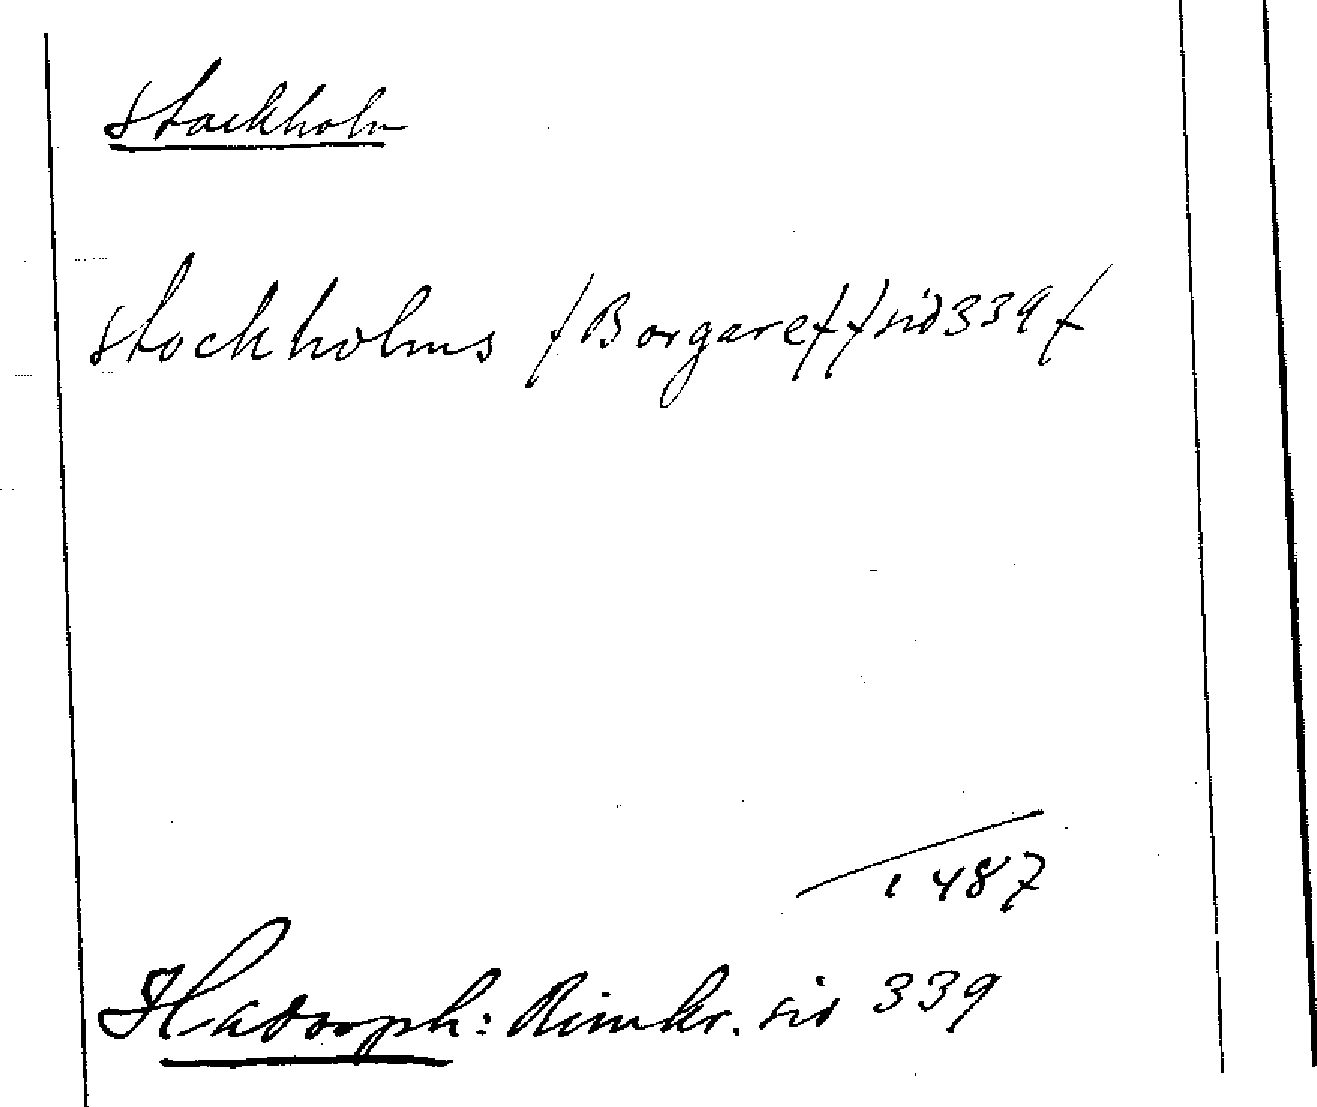 Stockholm
Stockholms /Borgare// sid 339/
1487
Hadorph: Rimkr. sid 339